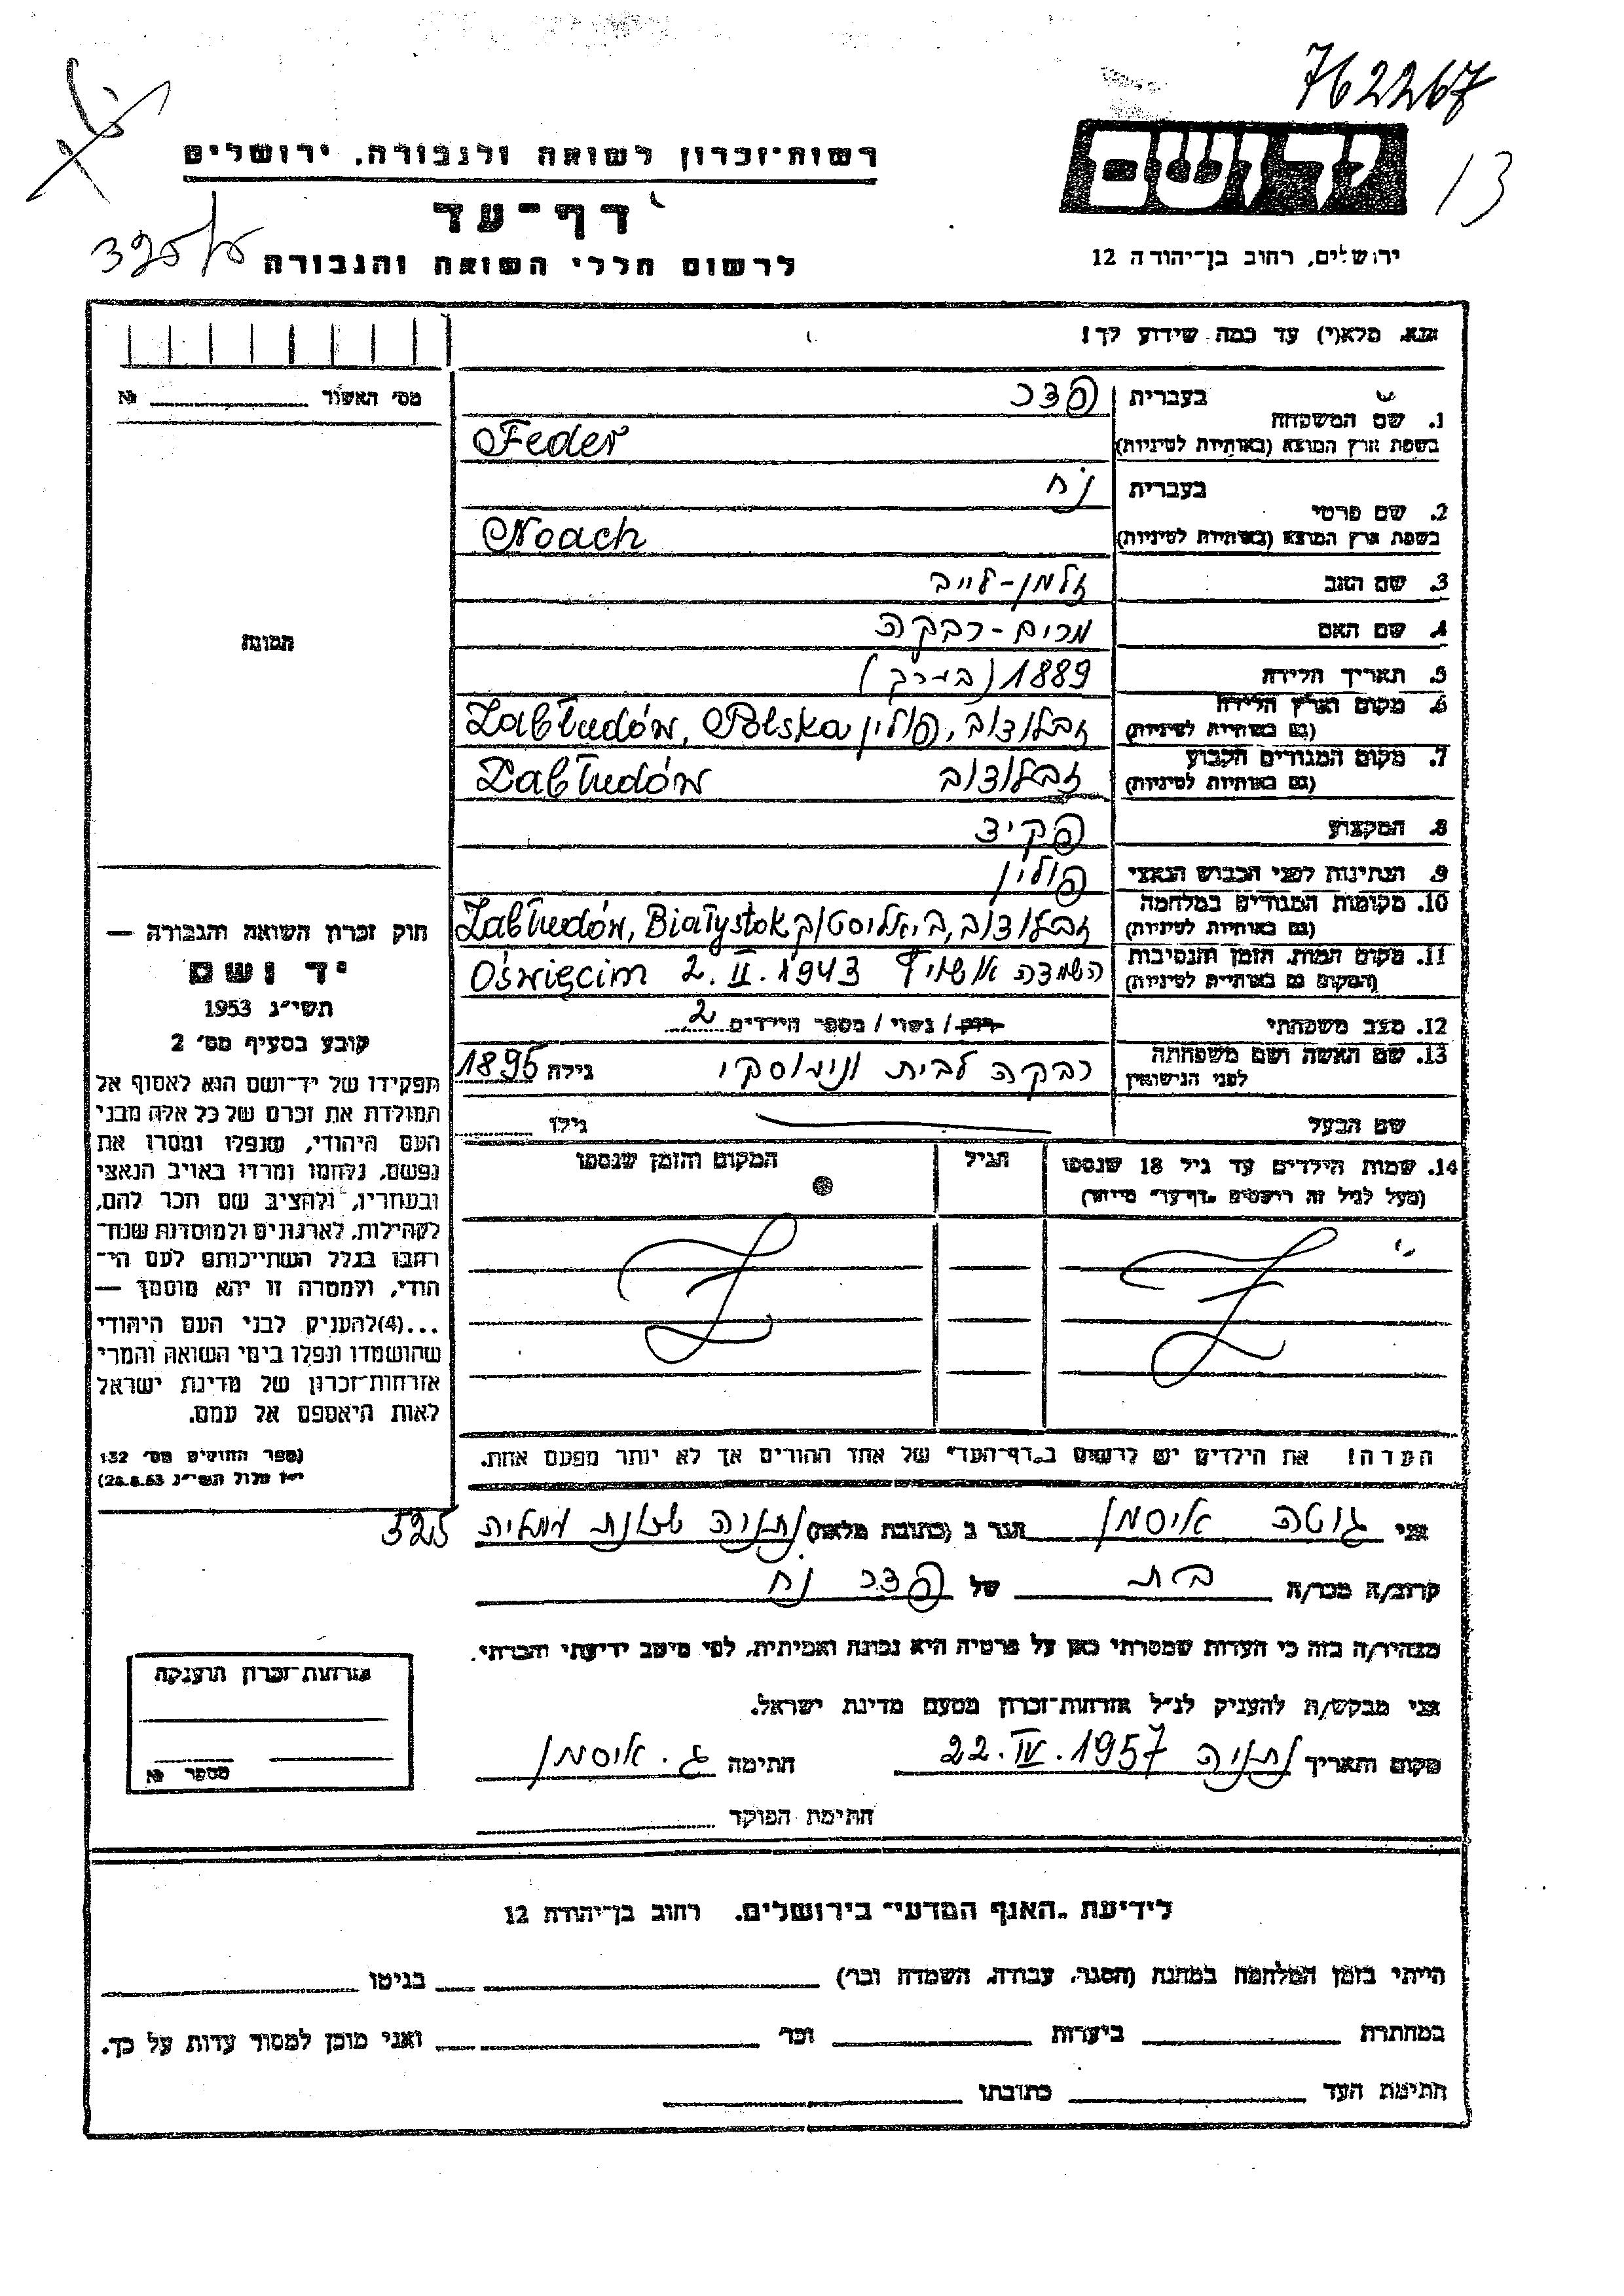 762267
יד ושם
13
רשות־זכרון לשואה ולגבורה, ירושלים
דף־עד
לרשום חללי השואה והגבורה
ירושלים, רחוב בן־יהודה 12
אנא, מלא(י) עד כמה שידוע לך!
מס׳ האשור № 
1. שם המשפחה
בעברית פדר
בשפת ארץ המוצא (באותיות לטיניות) Feder
2. שם פרטי
בעברית נח
בשפת ארץ המוצא (באותיות לטיניות) Noach
3. שם האב זלמן-לייב
4. שם האם מרים-רבקה
5. תאריך הלידה 1889 (בערך)
6. מקום וארץ הלידה (גם באותיות לטיניות) זבלודוב, פולין Zabłudów, Polska
7. מקום המגורים הקבוע (גם באותיות לטיניות) זבלודוב Zabłudów
8. המקצוע פקיד
9. הנתינות לפני הכבוש הנאצי פולין
10. מקומות המגורים במלחמה (גם באותיות לטיניות) זבלודוב, ביאליסטוק Zabłudów, Białystok
11. מקום המות, הזמן והנסיבות (המקום גם באותיות לטיניות) השמדה אושויץ Oświęcim 2.II.1943
12. מצב משפחתי רווק / נשוי / מספר הילדים 2
13. שם האשה ושם משפחתה לפני הנישואין רבקה לבית גילה 1895
שם הבעל גילו
14. שמות הילדים עד גיל 18 שנספו (מעל לגיל זה רושמים „דף־עד״ מיוחד)
הגיל
המקום והזמן שנספו
הערה! את הילדים יש לרשום ב„דף־העד״ של אחד ההורים אך לא יותר מפעם אחת.
תמונה
חוק זכרון השואה והגבורה —
יד ושם
תשי״ג 1953
קובע בסעיף מס׳ 2
תפקידו של יד־ושם הוא לאסוף אל
המולדת את זכרם של כל אלה מבני
העם היהודי, שנפלו ומסרו את
נפשם, נלחמו ומרדו באויב הנאצי
ובעוזריו, ולהציב שם וזכר להם,
לקהילות, לארגונים ולמוסדות שנח־
רבו בגלל השתייכותם לעם הי־
הודי, ולמטרה זו יהא מוסמך —
...(4)להעניק לבני העם היהודי
שהושמדו ונפלו בימי השואה והמרי
אזרחות־זכרון של מדינת ישראל
לאות היאספם אל עמם.
(ספר החוקים מס׳ 132
י״ז אלול תשי״ג 28.8.53)
אני גוטה איסמן הגר ב (כתובת מלאה) נתניה שכונת 525
קרוב/ה מכר/ה בת של פדר נח
מצהיר/ה בזה כי העדות שמסרתי כאן על פרטיה היא נכונה ואמיתית, לפי מיטב ידיעתי והכרתי.
אני מבקש/ת להעניק לנ״ל אזרחות־זכרון מטעם מדינת ישראל.
מקום ותאריך נתניה 22.IV.1957 חתימה ג. איסמן
חתימת הפוקד
אזרחות־זכרון הוענקה
מספר №
לידיעת „האגף המדעי״ בירושלים, רחוב בן־יהודה 12
הייתי בזמן המלחמה במחנה (הסגר, עבודה, השמדה וכו׳) בגיטו
במחתרת ביערות וכו׳ ואני מוכן למסור עדות על כך.
חתימת העד כתובתו